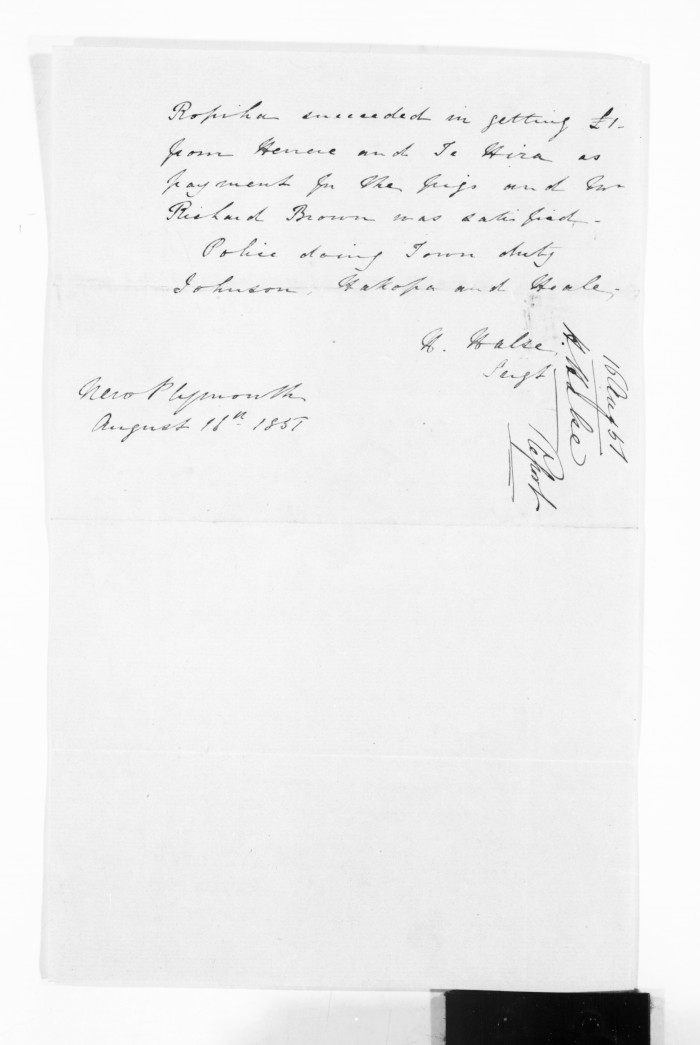 Ropiha succeeded in getting £1-
from Henere and Te Hira as
payment for the pigs and Mr
Richard Brown was satisfied-
Police doing Town duty
Johnson, Hakopa and Heale,
H. Halse,
Sergt
New Plymouth
August 16th 1851
16 Aug 51
H Halse
Report